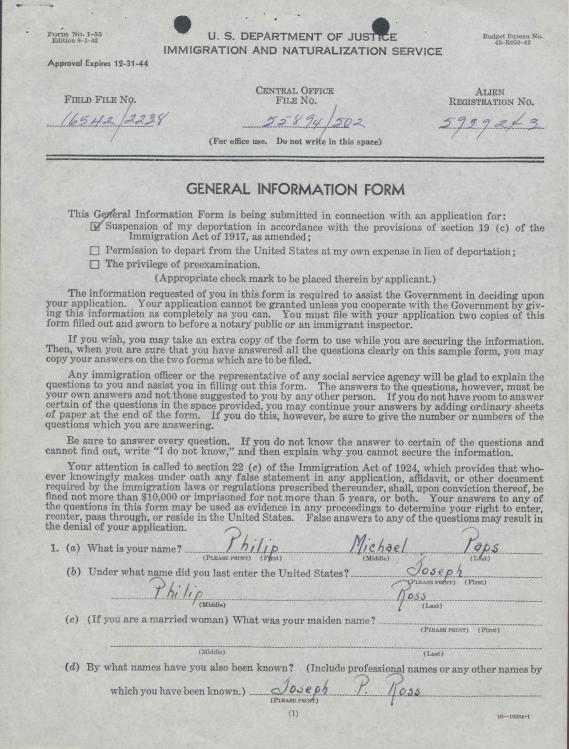 Form No. I-55
Edition 8-1-42
Approval Expires 12-31-44
U. S. DEPARTMENT OF JUSTICE
IMMIGRATION AND NATURALIZATION SERVICE
Budget Bureau No.
43-R050-42
FIELD FILE NO.
16542/2238
CENTRAL OFFICE
FILE NO.
55894/502
ALIEN
REGISTRATION NO.
(For office use. Do not write in this space)
GENERAL INFORMATION FORM
This General Information Form is being submitted in connection with an application for:
☑ Suspension of my deportation in accordance with the provisions of section 19 (c) of the
Immigration Act of 1917, as amended;
☐ Permission to depart from the United States at my own expense in lieu of deportation;
☐ The privilege of preexamination.
(Appropriate check mark to be placed therein by applicant.)
The information requested of you in this form is required to assist the Government in deciding upon
your application. Your application cannot be granted unless you cooperate with the Government by giv-
ing this information as completely as you can. You must file with your application two copies of this
form filled out and sworn to before a notary public or an immigrant inspector.
If you wish, you may take an extra copy of the form to use while you are securing the information.
Then, when you are sure that you have answered all the questions clearly on this sample form, you may
copy your answers on the two forms which are to be filed.
Any immigration officer or the representative of any social service agency will be glad to explain the
questions to you and assist you in filling out this form. The answers to the questions, however, must be
your own answers and not those suggested to you by any other person. If you do not have room to answer
certain of the questions in the space provided, you may continue your answers by adding ordinary sheets
of paper at the end of the form. If you do this, however, be sure to give the number or numbers of the
questions which you are answering.
Be sure to answer every question. If you do not know the answer to certain of the questions and
cannot find out, write "I do not know," and then explain why you cannot secure the information.
Your attention is called to section 22 (c) of the Immigration Act of 1924, which provides that who-
ever knowingly makes under oath any false statement in any application, affidavit, or other document
required by the immigration laws or regulations prescribed thereunder, shall, upon conviction thereof, be
fined not more than $10,000 or imprisoned for not more than 5 years, or both. Your answers to any of
the questions in this form may be used as evidence in any proceedings to determine your right to enter,
reenter, pass through, or reside in the United States. False answers to any of the questions may result in
the denial of your application.
1. (a) What is your name? Philip Michael Paps
(PLEASE PRINT) (First) (Middle) (Last)
(b) Under what name did you last enter the United States? Joseph
(PLEASE PRINT) (First)
Philip Ross
(Middle) (Last)
(c) (If you are a married woman) What was your maiden name?
(PLEASE PRINT) (First)
(Middle) (Last)
(d) By what names have you also been known? (Include professional names or any other names by
which you have been known.) Joseph P. Ross
(PLEASE PRINT)
(1)